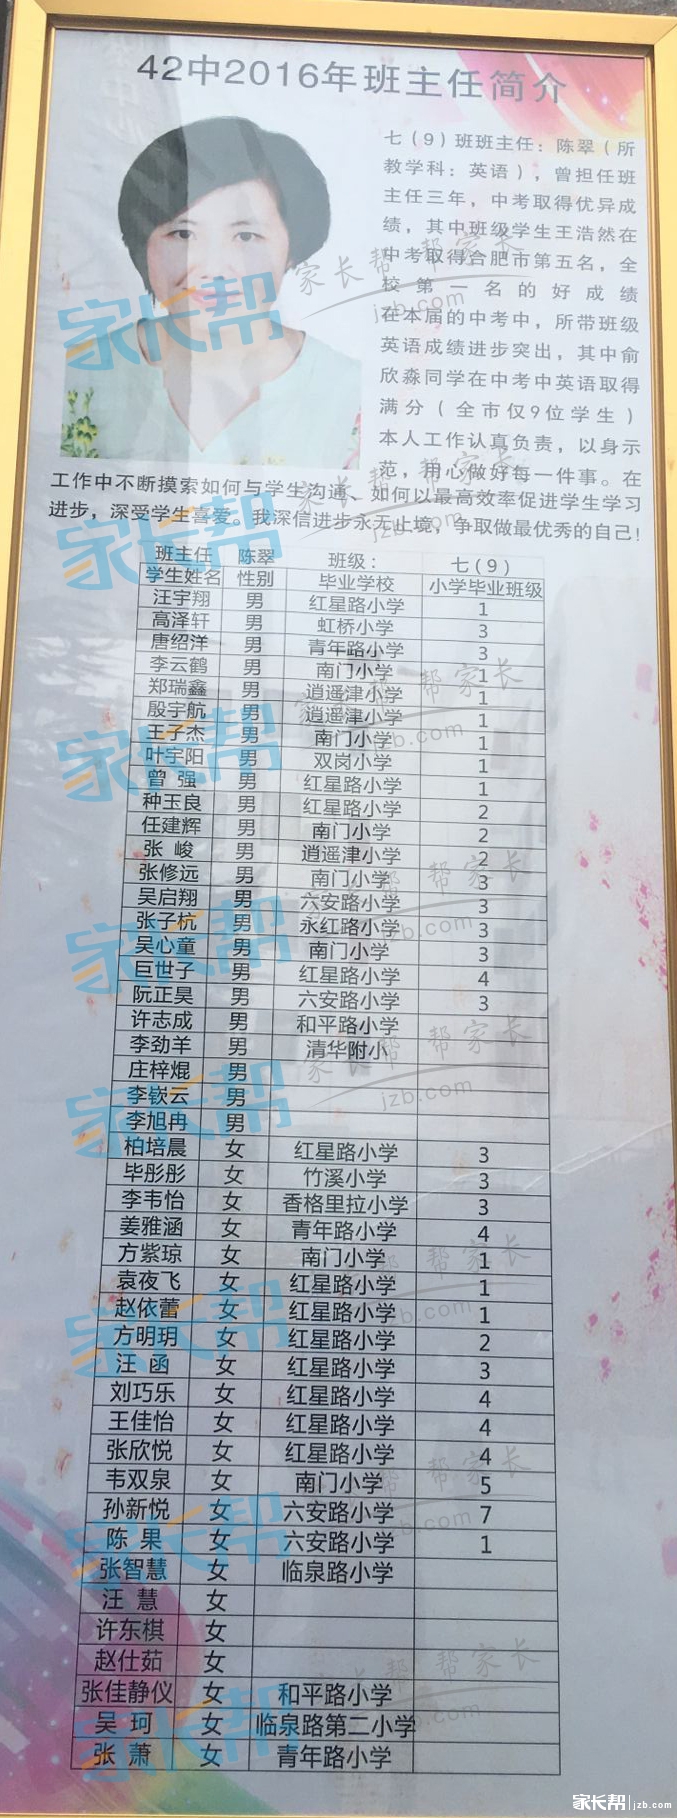 42中2016年班主任简介
七（9）班班主任：陈翠（所
教学科：英语），曾担任班
主任三年，中考取得优异成
绩，其中班级学生王浩然在
中考取得合肥市第五名，全
校第一名的好成绩
在本届的中考中，所带班级
英语成绩进步突出，其中俞
欣淼同学在中考中英语取得
满分（全市仅9位学生）
本人工作认真负责，以身示
范，用心做好每一件事。在
工作中不断摸索如何与学生沟通、如何以最高效率促进学生学习
进步，深受学生喜爱。我深信进步永无止境，争取做最优秀的自己！
班主任 陈翠 班级： 七（9）
学生姓名 性别 毕业学校 小学毕业班级
汪宇翔 男 红星路小学 1
高泽轩 男 虹桥小学 3
唐绍洋 男 青年路小学 3
李云鹤 男 南门小学 1
郑瑞鑫 男 逍遥津小学 1
殷宇航 男 逍遥津小学 1
王子杰 男 南门小学 1
叶宇阳 男 双岗小学 1
曾 强 男 红星路小学 1
种玉良 男 红星路小学 2
任建辉 男 南门小学 2
张 峻 男 逍遥津小学 2
张修远 男 南门小学 3
吴启翔 男 六安路小学 3
张子杭 男 永红路小学 3
吴心童 男 南门小学 3
巨世子 男 红星路小学 4
阮正昊 男 六安路小学 3
许志成 男 和平路小学
李劲羊 男 清华附小
庄梓焜 男
李钦云 男
李旭冉 男
柏培晨 女 红星路小学 3
毕彤彤 女 竹溪小学 3
李韦怡 女 香格里拉小学 3
姜雅涵 女 青年路小学 4
方紫琼 女 南门小学 1
袁夜飞 女 红星路小学 1
赵依蕾 女 红星路小学 1
方明玥 女 红星路小学 2
汪 函 女 红星路小学 3
刘巧乐 女 红星路小学 4
王佳怡 女 红星路小学 4
张欣悦 女 红星路小学 4
韦双泉 女 南门小学 5
孙新悦 女 六安路小学 7
陈 果 女 六安路小学 1
张智慧 女 临泉路小学
汪 慧 女
许东棋 女
赵仕茹 女
张佳静仪 女 和平路小学
吴 珂 女 临泉路第二小学
张 萧 女 青年路小学
家长帮 jzb.com